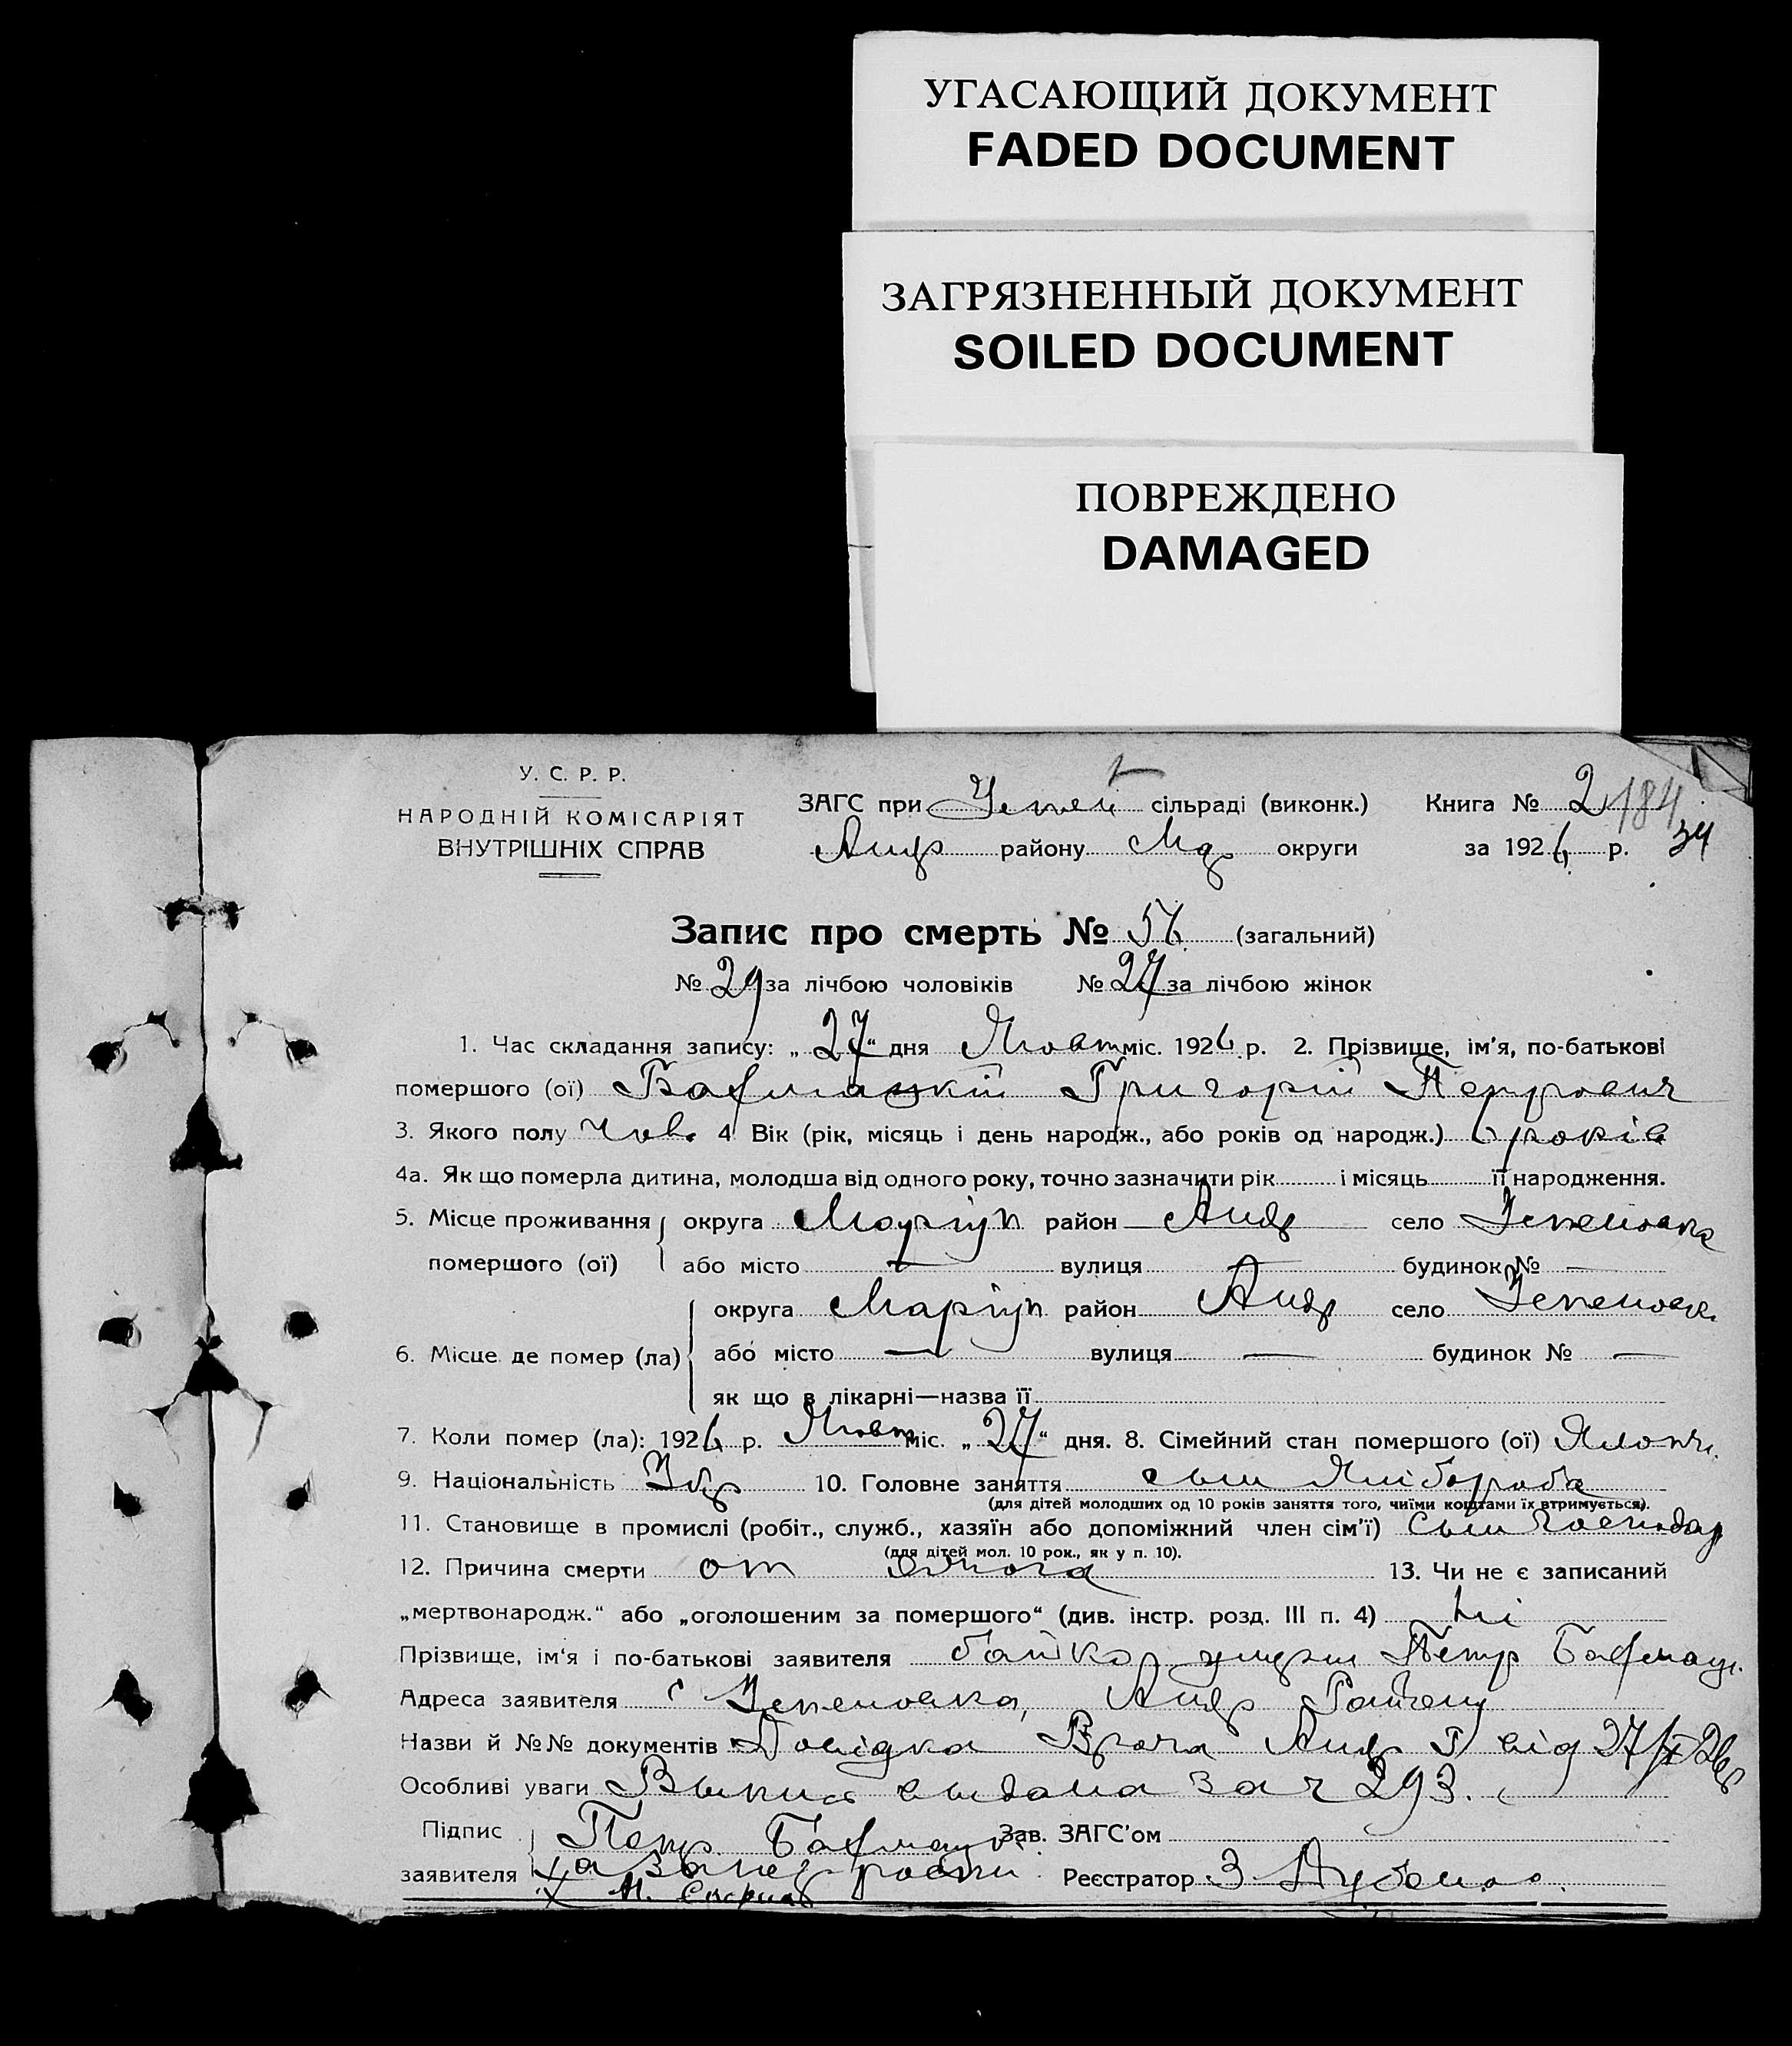 УГАСАЮЩИЙ ДОКУМЕНТ
FADED DOCUMENT
ЗАГРЯЗНЕННЫЙ ДОКУМЕНТ
SOILED DOCUMENT
ПОВРЕЖДЕНО
DAMAGED
У. С. Р. Р.
НАРОДНІЙ КОМІСАРІЯТ
ВНУТРІШНІХ СПРАВ
ЗАГС при сільраді (виконк.) Книга № 2 184
Андр району Мар округи за 1926 р. 34
Запис про смерть № 56 (загальний)
№ 29 за лічбою чоловіків № 27 за лічбою жінок
1. Час складання запису: „27“ дня Жовт міс. 1926 р. 2. Прізвище, ім'я, по-батькові
помершого (ої) Григорій Петрович
3. Якого полу Чов. 4 Вік (рік, місяць і день народж., або років од народж.) 6 років
4а. Як що померла дитина, молодша від одного року, точно зазначити рік і місяць її народження.
5. Місце проживання округа Маріуп район Андр село
помершого (ої) або місто — вулиця — будинок № —
округа Маріуп район Андр село
6. Місце де помер (ла) або місто — вулиця — будинок № —
як що в лікарні—назва її
7. Коли помер (ла): 1926 р. Жовт міс. „27“ дня. 8. Сімейний стан помершого (ої)
9. Національність 10. Головне заняття сын Хлібороба
(для дітей молодших од 10 років заняття того, чиїми коштами їх втримується).
11. Становище в промислі (робіт., служб., хазяїн або допоміжний член сім'ї) сын господар
(для дітей мол. 10 рок., як у п. 10).
12. Причина смерти от 13. Чи не є записаний
„мертвонародж.“ або „оголошеним за помершого“ (див. інстр. розд. III п. 4) Ні
Прізвище, ім'я і по-батькові заявителя батько Петр
Адреса заявителя с Андр Району
Назви й №№ документів Довідка Врача Андр Р від 27/X 26р
Особливі уваги Выпись выдана за ч 293.
Підпис Петр Зав. ЗАГС'ом
заявителя а за него рости Реєстратор З